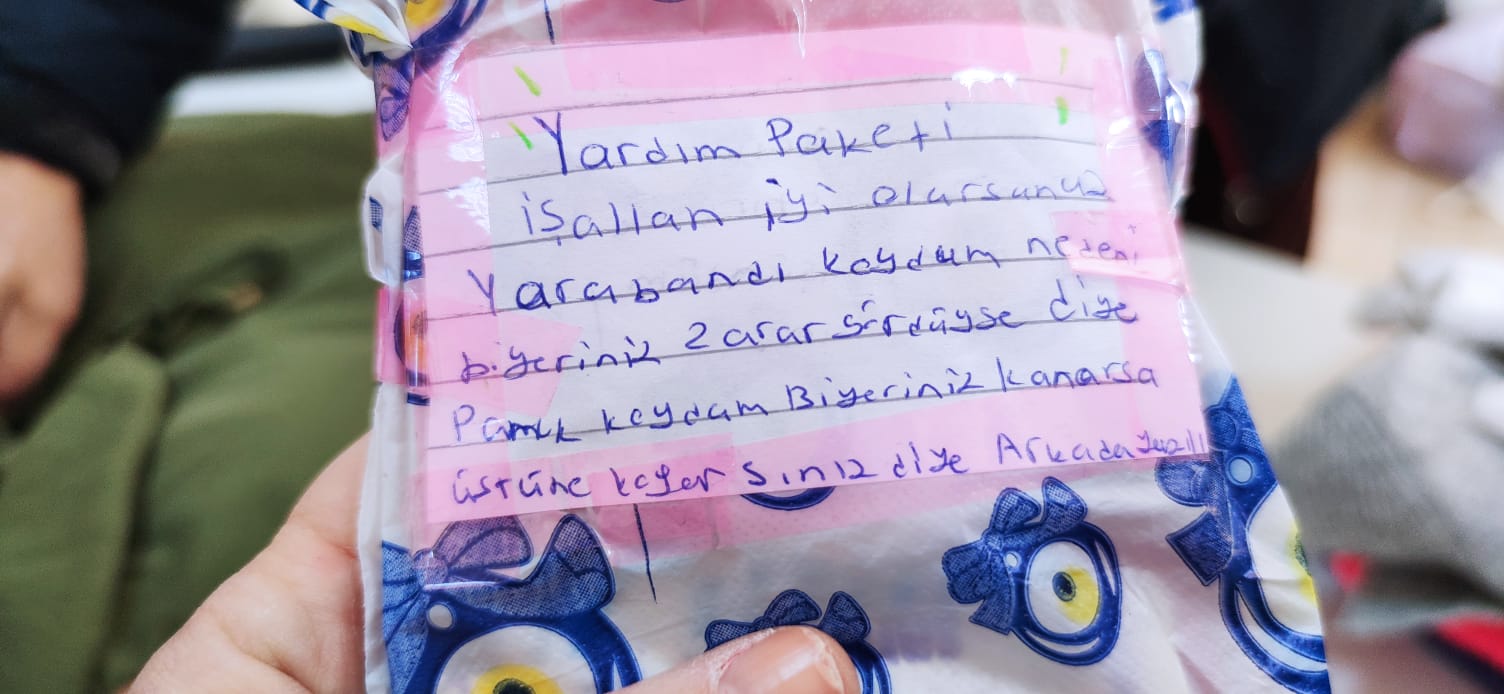 Yardım Paketi
işallan iyi olursunuz
Yarabandı koydum nedeni
biyeriniz zarar gördüyse diye
Pamuk koydum Biyeriniz kanarsa
üstüne koyarsınız diye Arkada yazılı